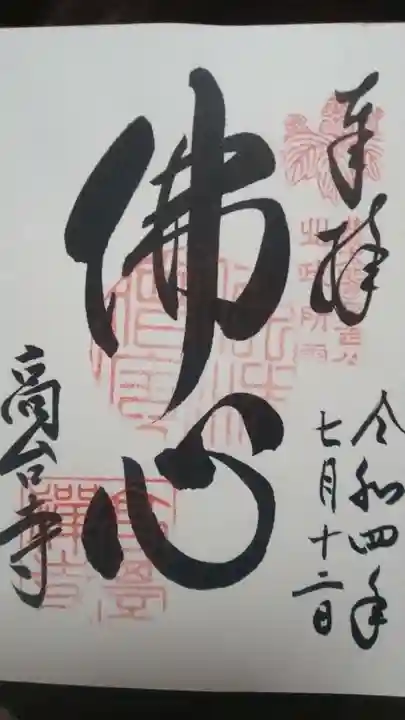 奉拝
令和四年
七月十二日
佛心
高台寺